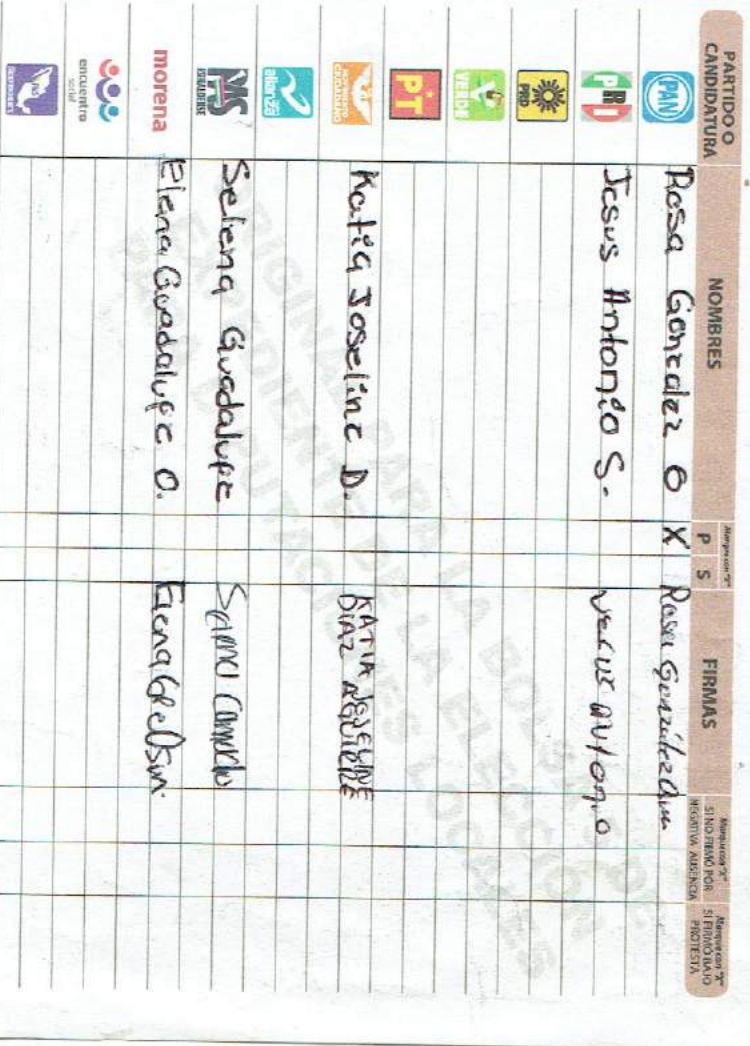 PARTIDO O CANDIDATURA NOMBRES Marque con "X" P S FIRMAS Marque con "X" SI NO FIRMÓ POR NEGATIVA AUSENCIA Marque con "X" SI FIRMÓ BAJO PROTESTA
PAN Rosa Gonzalez O X Rosa González
PRI Jesus Antonio S. Antonio
PRD
VERDE
PT
MOVIMIENTO CIUDADANO Katia Joseline D. KATIA JOSELINE DIAZ AGUIRRE
alianza
PAS SINALOENSE Selena Guadalupe
morena Elena Guadalupe O. Elena
encuentro social
ORIGINAL PARA LA BOLSA DE
EXPEDIENTE DE LA ELECCIÓN
PARA DIPUTACIONES LOCALES